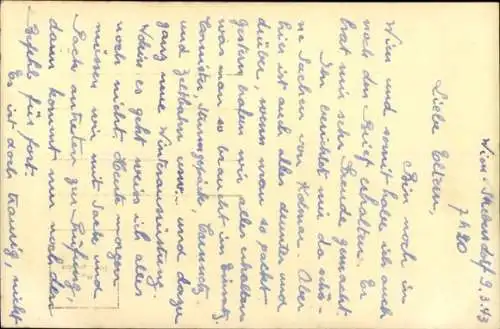 Wien - 9.3.43
7 h 20
Liebe Eltern,
Bin noch in
Wien und somit habe ich auch
noch den Brief erhalten. Er
hat mir sehr Freude gemacht.
Ihr berichtet mir da schö-
ne Sachen von Kolmar. Aber
hier ist auch alles drunter und
drüber, wenn man so packt.
Gestern haben wir alles erhalten
was man so braucht im Einsatz.
und Zeltbahn usw. - und dazu
ganz neue Winterausrüstung.
Wohin es geht weiss ich alles
noch nicht. Heute morgen
müssen wir mit Sack und
Pack antreten zur Prüfung,
dann kommt nur noch der
Befehl für fort.
Es ist doch traurig, nicht